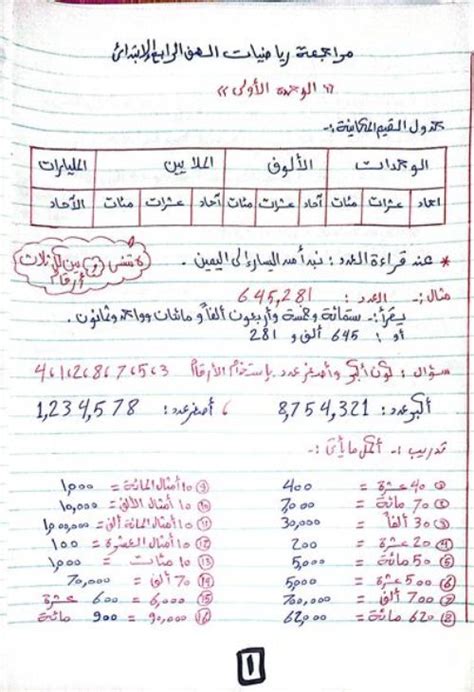 مراجعة رياضيات الصف الرابع الابتدائى
" الوحدة الأولى "
جدول القيم المكانية :-
الوحدات الألوف الملايين المليارات
آحاد عشرات مئات آحاد عشرات مئات آحاد عشرات مئات الآحاد
* عند قراءة العدد : نبدأ من اليسار إلى اليمين .
لا تنس (و) بين كل ثلاث أرقام
مثال :- العدد : 645,281
يقرأ :- ستمائة وخمسة وأربعون ألفاً و مائتان وواحد وثمانون .
أو : 645 ألف و 281
سؤال : كون أكبر وأصغر عدد بإستخدام الأرقام
أكبر عدد : 8,754,321 ، أصغر عدد : 1,234,578
تدريب :- أكمل ما يأتى :-
① 40 عشرة = 400
② 70 مائة = 7,000
③ 30 ألفاً = 30,000
④ 20 عشرة = 200
⑤ 50 مائة = 5,000
⑥ 500 عشرة = 5,000
⑦ 700 ألف = 700,000
⑧ 620 مائة = 62,000
⑨ 10 أمثال المائة = 1,000
⑩ 10 أمثال الألف = 10,000
⑪ 10 أمثال المائة ألف = 1,000,000
⑫ 10 أمثال العشرة = 100
⑬ 10 مئات = 1,000
⑭ 70 ألف = 70,000
⑮ 6,000 = 600 عشرة
⑯ 90,000 = 900 مائة
1